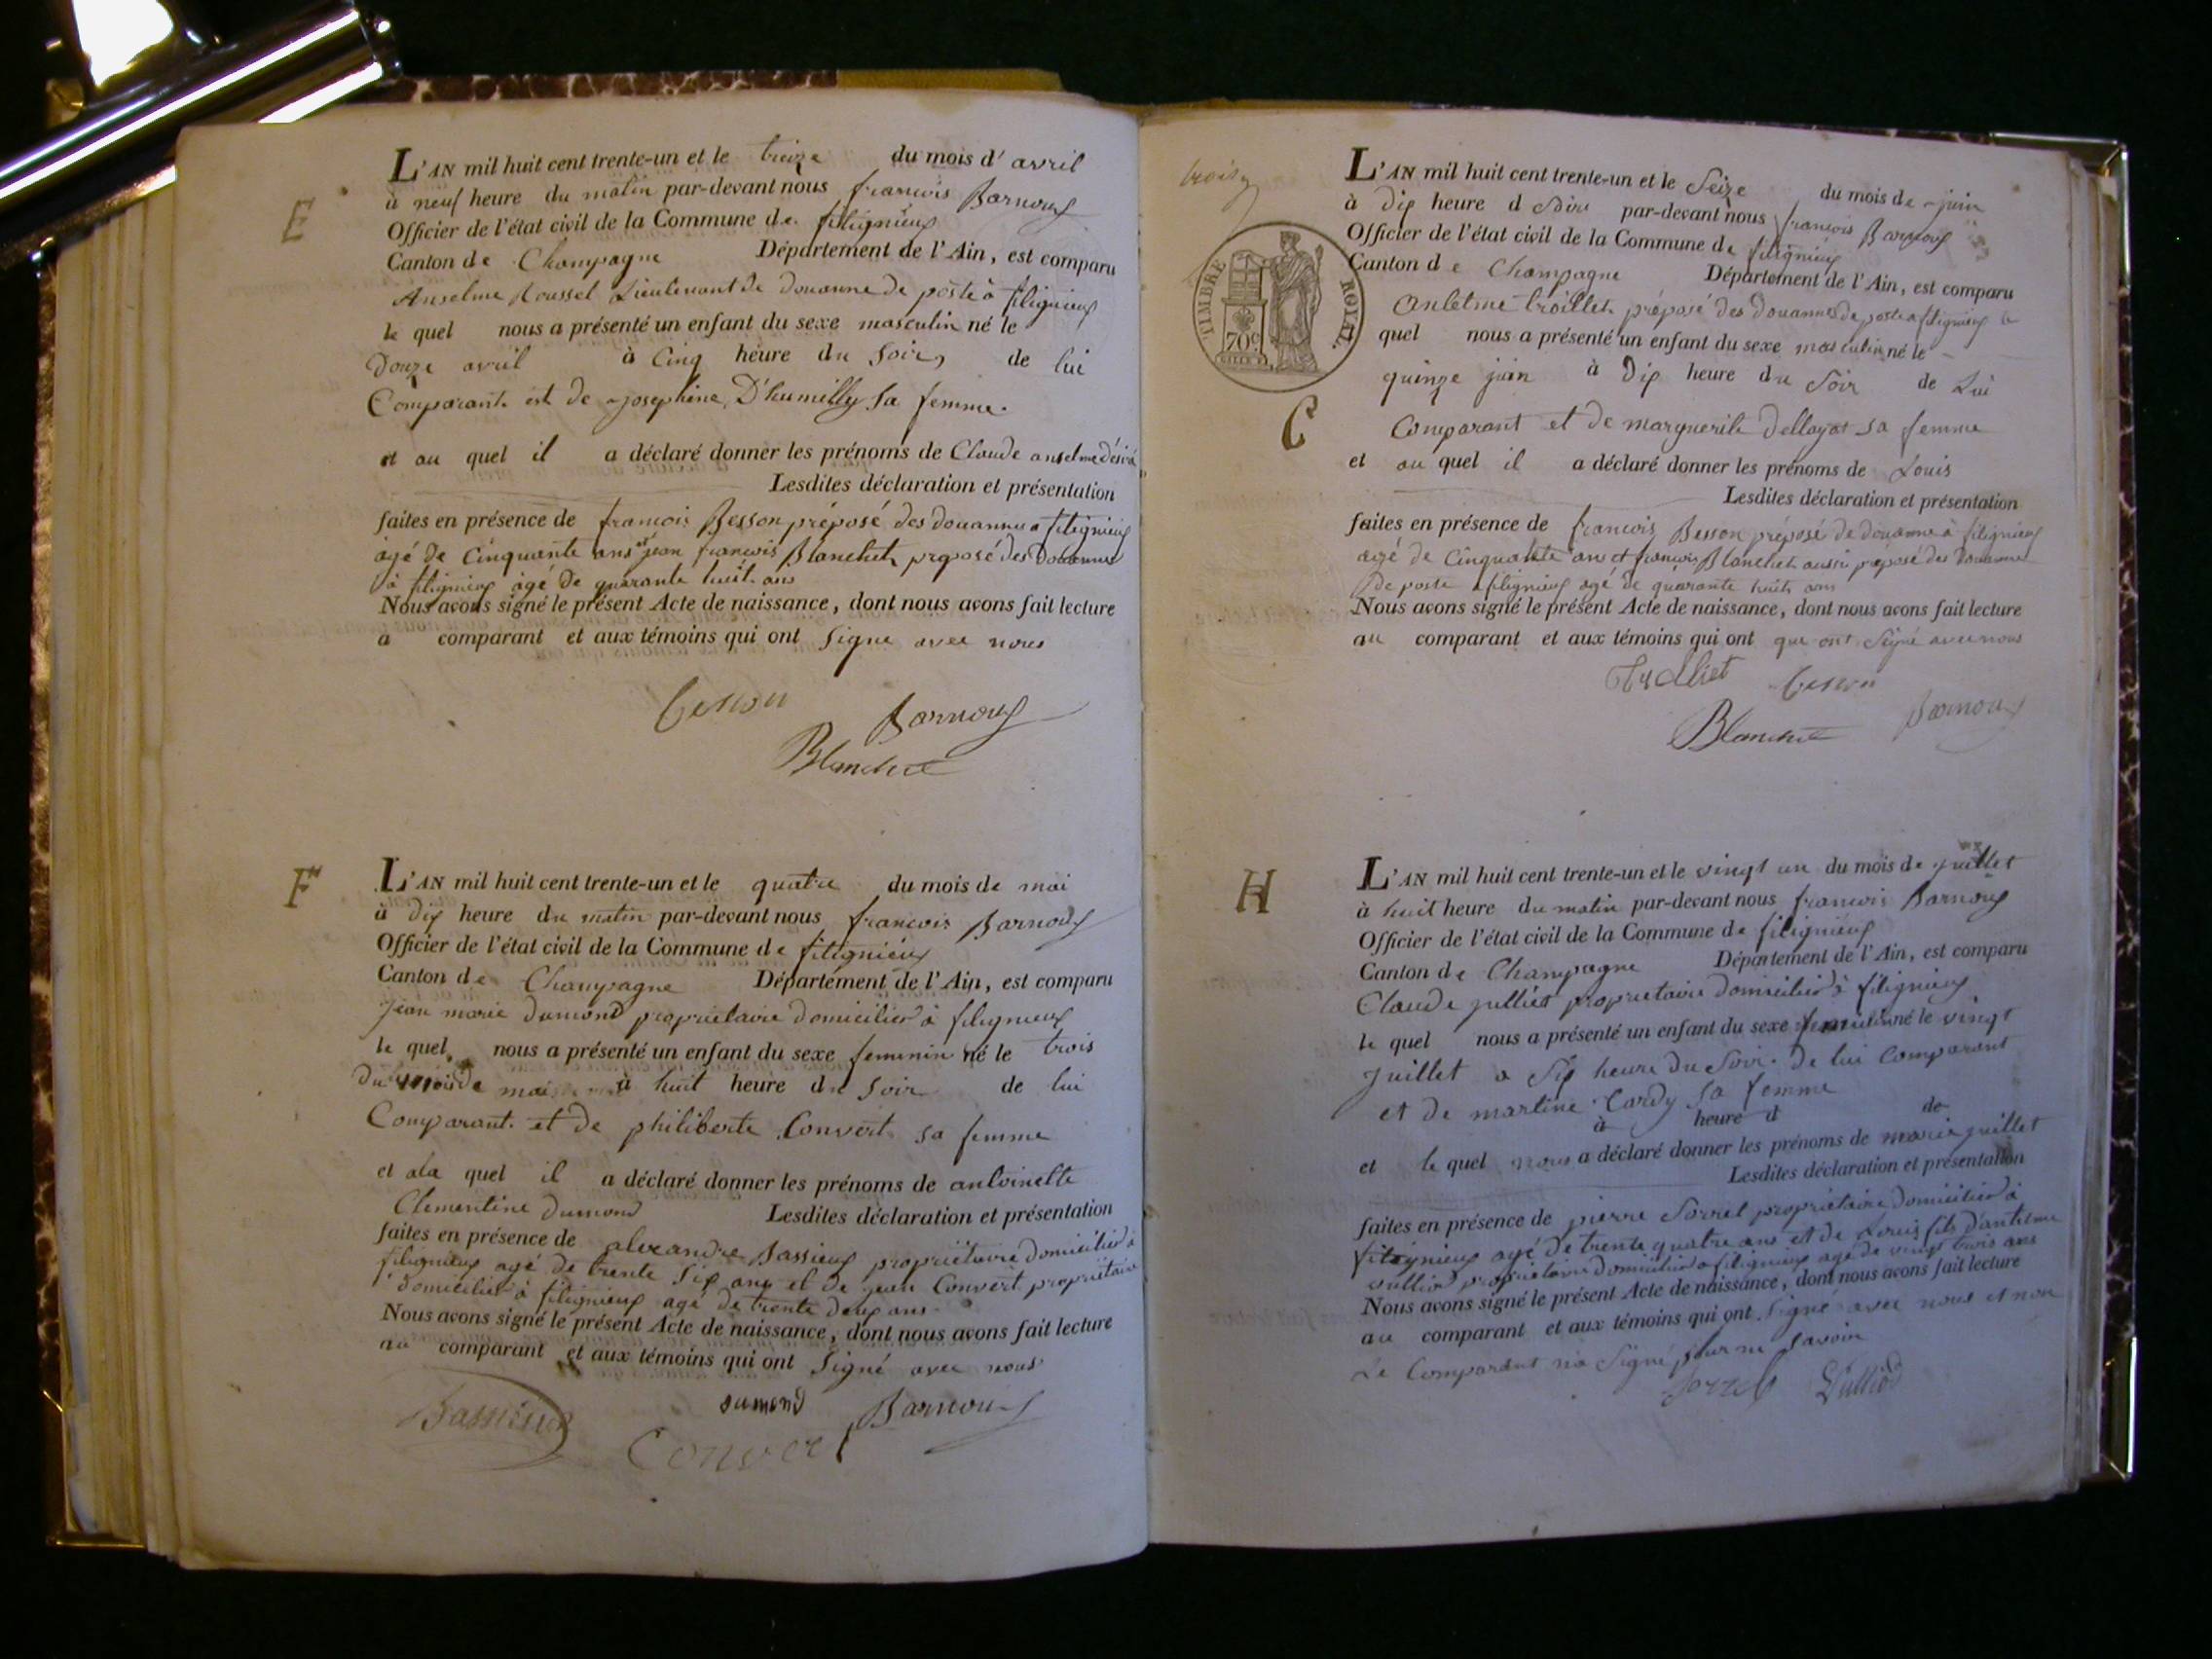 E
L'AN mil huit cent trente-un et le treize du mois d' avril
à neuf heure du matin par-devant nous francois Barnoux
Officier de l'état civil de la Commune de filignieux
Canton de Champagne Département de l'Ain, est comparu
Anselme Roussel Lieutenant de douanne de poste à filignieux
le quel nous a présenté un enfant du sexe masculin né le
Douze avril à Cinq heure du Soir, de lui
Comparant. et de josephine D'humilly sa femme.
et au quel il a déclaré donner les prénoms de Claude anselme désiré
Lesdites déclaration et présentation
faites en présence de francois Besson préposé des douannes a filignieux
agé de Cinquante ans et jean francois Blanchet, preposé des Douannes
à filignieux agé de quarante huit ans
Nous avons signé le présent Acte de naissance, dont nous avons fait lecture
a comparant et aux témoins qui ont Signe avec nous
besson Barnoux
Blanchet
F
L'AN mil huit cent trente-un et le quatre du mois de mai
à dix heure du matin par-devant nous francois Barnoux
Officier de l'état civil de la Commune de filignieux
Canton de Champagne Département de l'Ain, est comparu
Jean marie Dumond proprietaire domicilier à filignieux
le quel nous a présenté un enfant du sexe feminin né le trois
Du mois de mai à huit heure du Soir de lui
Comparant. et de philiberte Convert sa femme
et ala quel il a déclaré donner les prénoms de antoinette
Clementine Dumond Lesdites déclaration et présentation
faites en présence de alexandre Bassieux propriétaire domicilier à
filignieux agé de trente Six ans et de jean Convert propriétaire
domicilier à filignieux agé de trente Deux ans
Nous avons signé le présent Acte de naissance, dont nous avons fait lecture
au comparant et aux témoins qui ont Signé avec nous
Bassieux dumond Barnoux
Convert
TIMBRE ROYAL.
70c.
L'AN mil huit cent trente-un et le Seize du mois de juin
à Dix heure d Soir par-devant nous francois Barnoux
Officier de l'état civil de la Commune de filignieux
Canton de Champagne Département de l'Ain, est comparu
Anletme troillet. préposé Des Douannes de poste a filignieux le
quel nous a présenté un enfant du sexe masculin né le
quinze juin à Dix heure du Soir de Lui
C
Comparant et de marguerite Dellayat sa femme
et au quel il a déclaré donner les prénoms de Louis
Lesdites déclaration et présentation
faites en présence de francois Besson préposé de douanne à filignieux
agé de Cinquante an et francois Blanchet aussi préposé des Douannes
De poste a filignieux agé de quarante huits ans
Nous avons signé le présent Acte de naissance, dont nous avons fait lecture
au comparant et aux témoins qui ont qui ont Signé avec nous
besson
Blanchet Barnoux
H
L'AN mil huit cent trente-un et le vingt un du mois de juillet
à huit heure du matin par-devant nous francois Barnoux
Officier de l'état civil de la Commune de filignieux
Canton de Champagne Département de l'Ain, est comparu
Claude jullier proprietaire domicilier à filignieux
le quel nous a présenté un enfant du sexe né le vingt
Juillet a Six heure du Soir. de lui Comparant
et de martine Cardy sa femme
à heure d de
et le quel nous a déclaré donner les prénoms de marie juillet
Lesdites déclaration et présentation
faites en présence de pierre Sorrel propriétaire domicilier à
filignieux agé de trente quatre ans et de Louis fils d'antelme
proprietaire domicilier a filignieux agé de vingt trois ans
Nous avons signé le présent Acte de naissance, dont nous avons fait lecture
au comparant et aux témoins qui ont Signé avec nous et non
Le Comparant n'a Signé pour ne Savoir
Sorrel